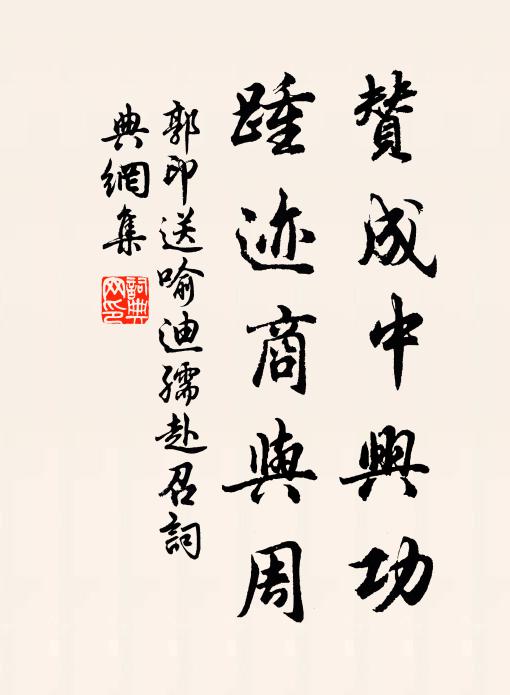 賛成中興功
踵迹商與周
郭印送喻迪孺赴召詞
典網集
詞典
网印